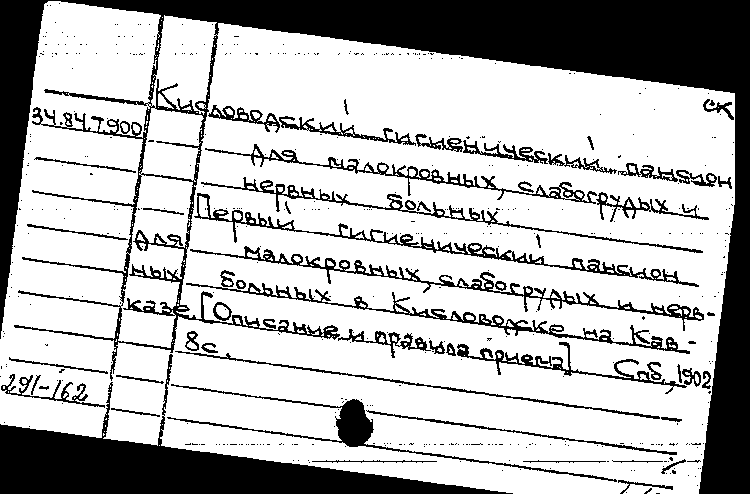 СК
Кисловодский гигиенический пансион
34.84.7.900
для малокровных, слабогрудых и
нервных больных.
Первый гигиенический пансион
для малокровных, слабогрудых и нерв-
ных больных в Кисловодске на Кав-
казе. [Описание и правила приема]. Спб., 1902
8с.
291-162